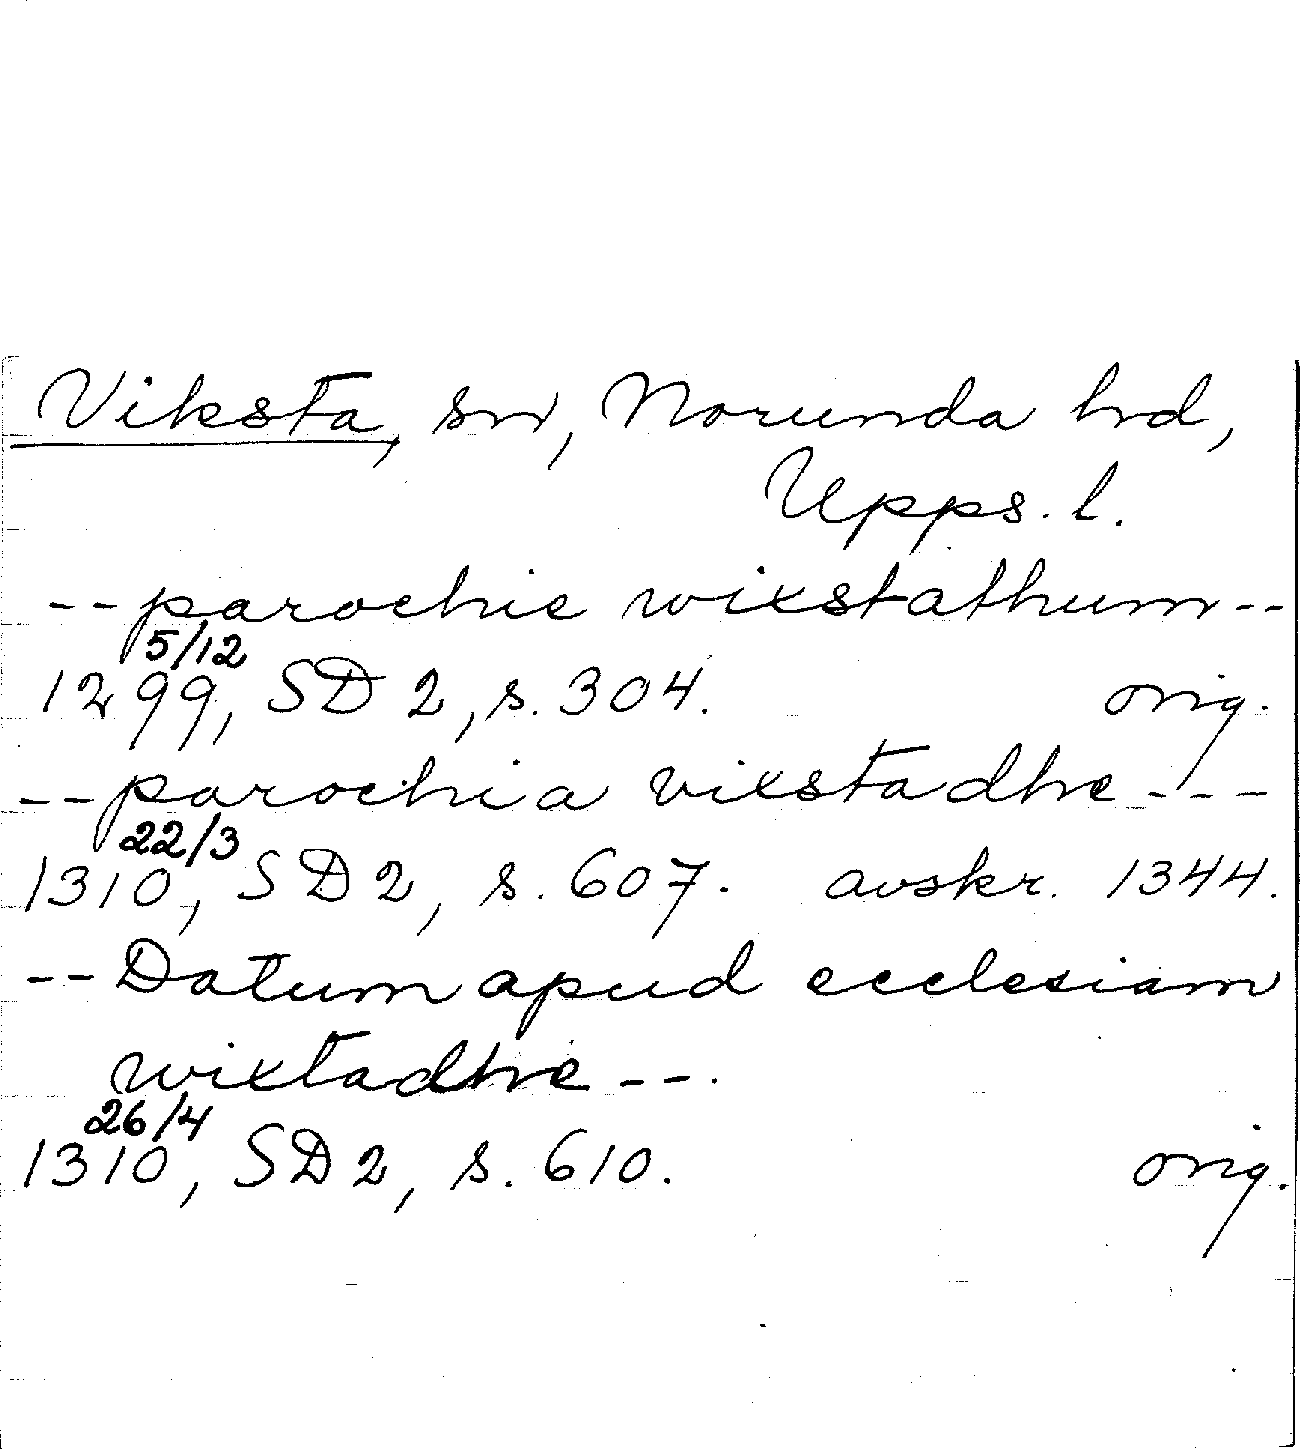 Viksta, sn, Norunda hrd,
Upps. l.
-- parochie wixstathum --
5/12
1299, SD 2, s. 304. orig.
-- parochia vixstadhe ---
22/3
1310, SD 2, s. 607. avskr. 1344.
-- Datum apud ecclesiam
wixtadhe --.
26/4
1310, SD 2, s. 610. orig.